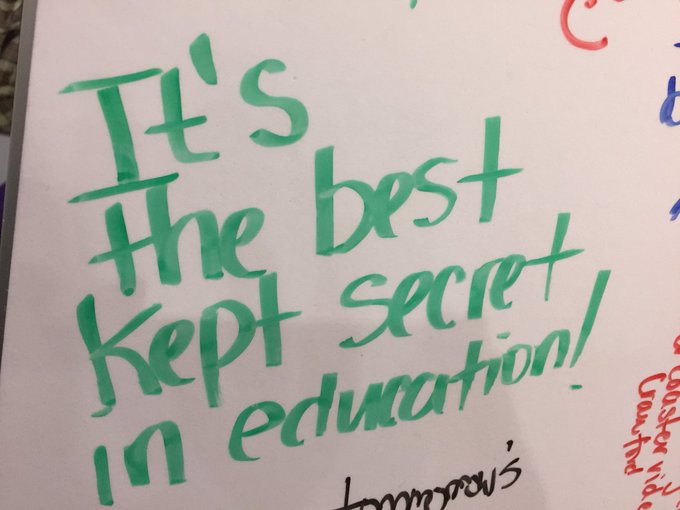 It's
the best
kept secret
in education!
tomorrow's
coaster vide
Crawford